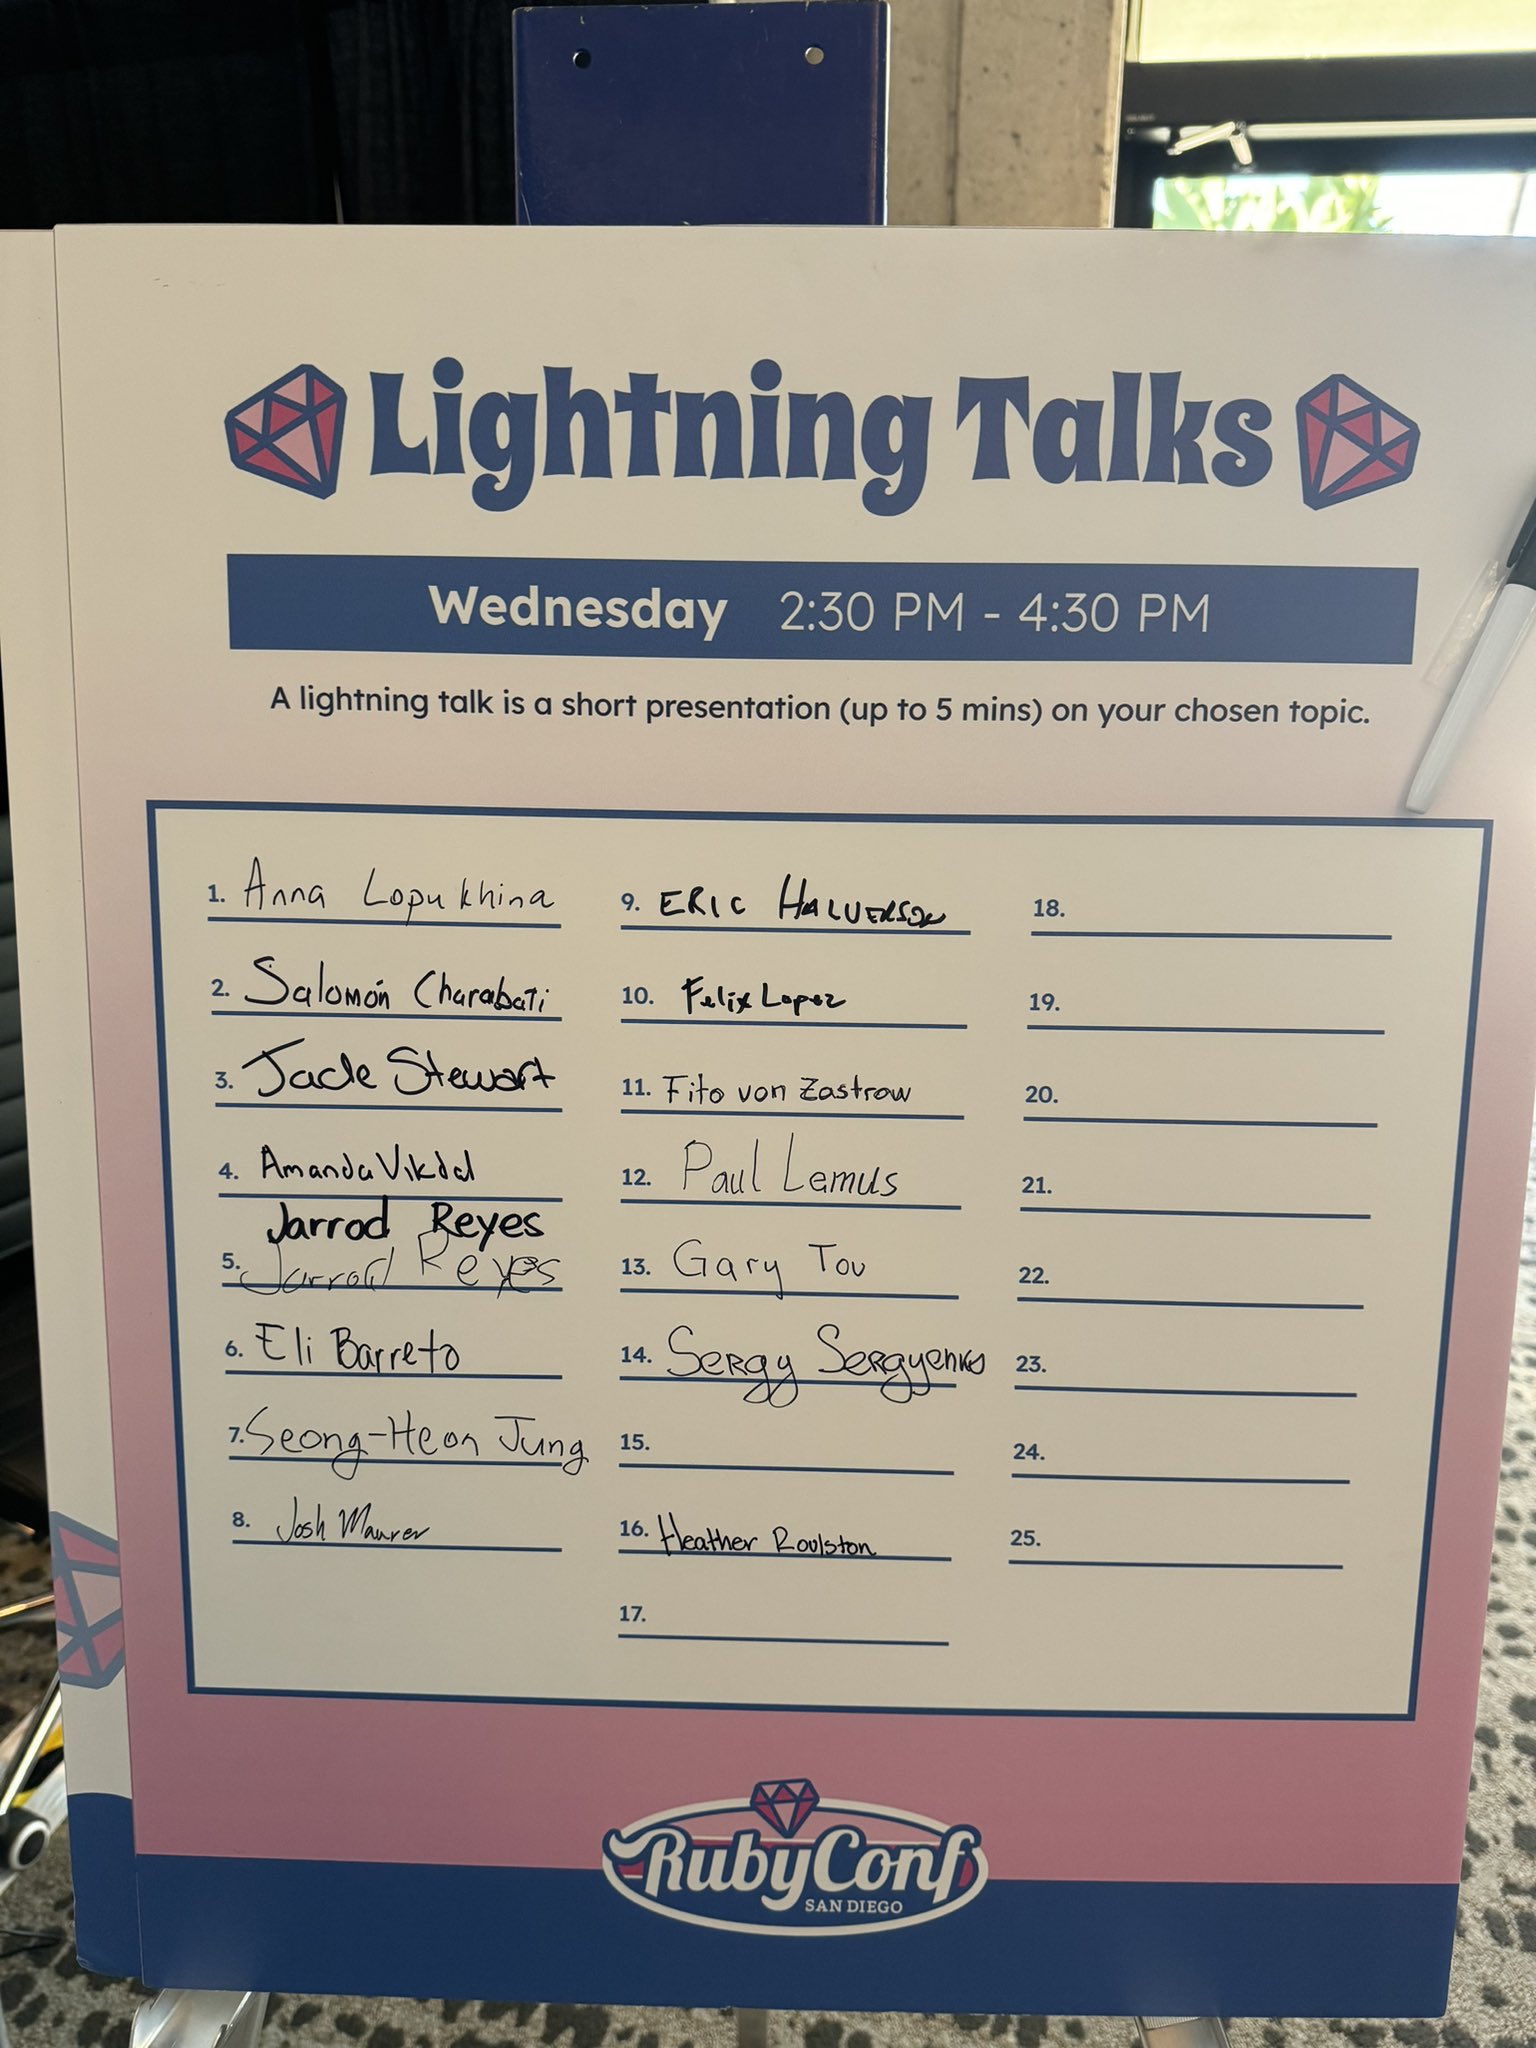 Lightning Talks
Wednesday 2:30 PM - 4:30 PM
A lightning talk is a short presentation (up to 5 mins) on your chosen topic.
1. Anna Lopukhina
2. Salomón Charabati
3. Jade Stewart
4. Amanda Vikdal
Jarrod Reyes
5. Jarrod Reyes
6. Eli Barreto
7. Seong-Heon Jung
8. Josh Maurer
9. ERIC HALVERSON
10. Felix Lopez
11. Fito von Zastrow
12. Paul Lemus
13. Gary Tou
14. Sergy Sergyenko
15.
16. Heather Roulston
17.
18.
19.
20.
21.
22.
23.
24.
25.
RubyConf
SAN DIEGO